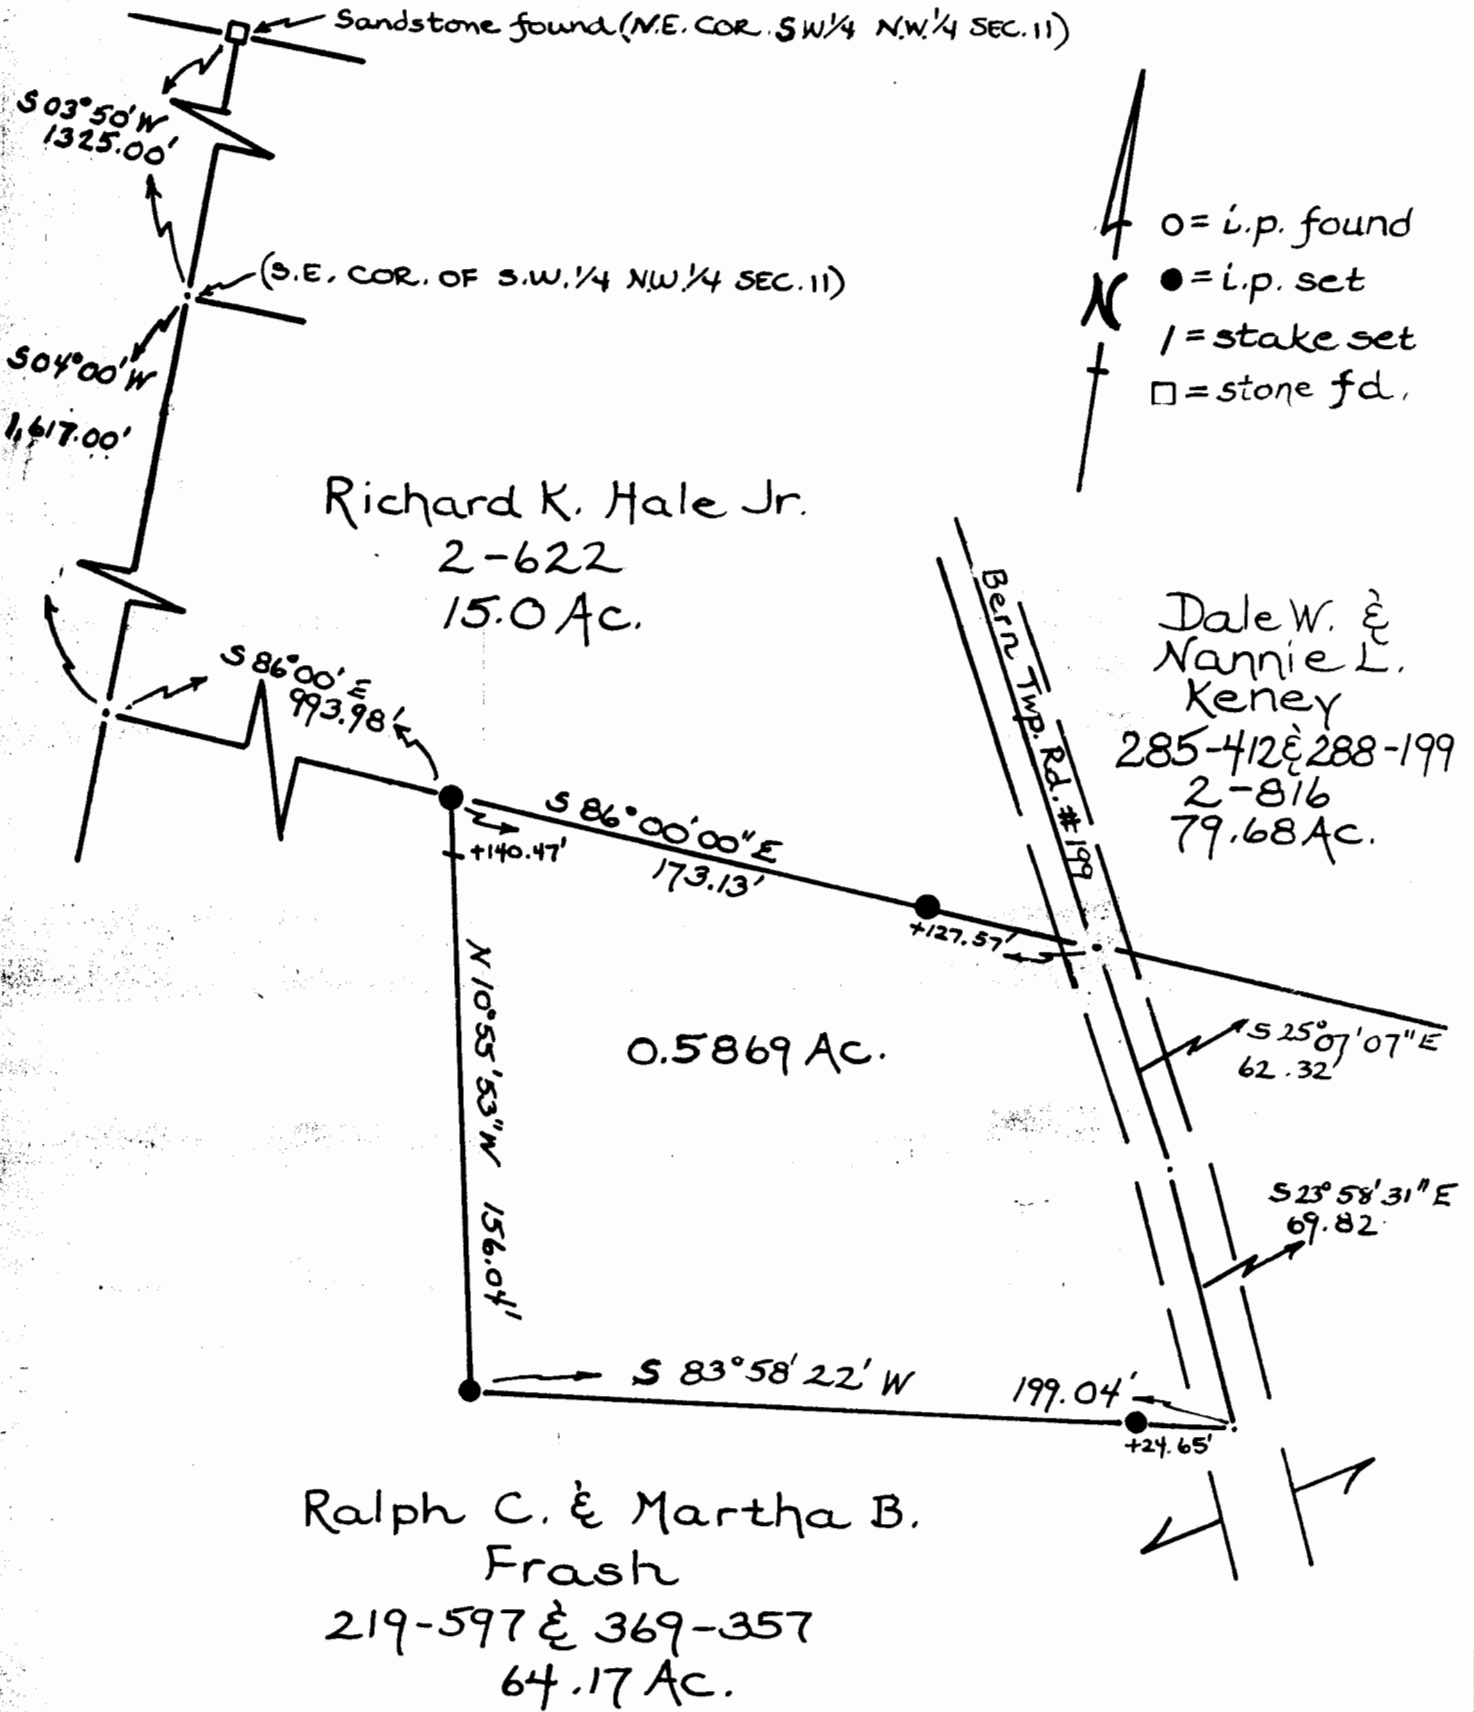 Sandstone found (N.E. COR. SW 1/4 N.W. 1/4 SEC. 11)
S 03°50' W
1325.00'
(S.E. COR. OF S.W. 1/4 N.W. 1/4 SEC. 11)
S 04°00' W
1,617.00'
N
o = i.p. found
● = i.p. set
/ = stake set
□ = stone fd.
Richard K. Hale Jr.
2-622
15.0 Ac.
Bern Twp. Rd. #199
Dale W. &
Nannie L.
Keney
285-412 & 288-199
2-816
79.68 Ac.
S 86°00' E
993.98'
S 86°00'00" E
173.13'
+140.47'
+127.57'
N 10°55'53" W 156.04'
0.5869 Ac.
S 25°07'07" E
62.32'
S 23°58'31" E
69.82
S 83°58'22' W 199.04'
+24.65'
Ralph C. & Martha B.
Frash
219-597 & 369-357
64.17 Ac.